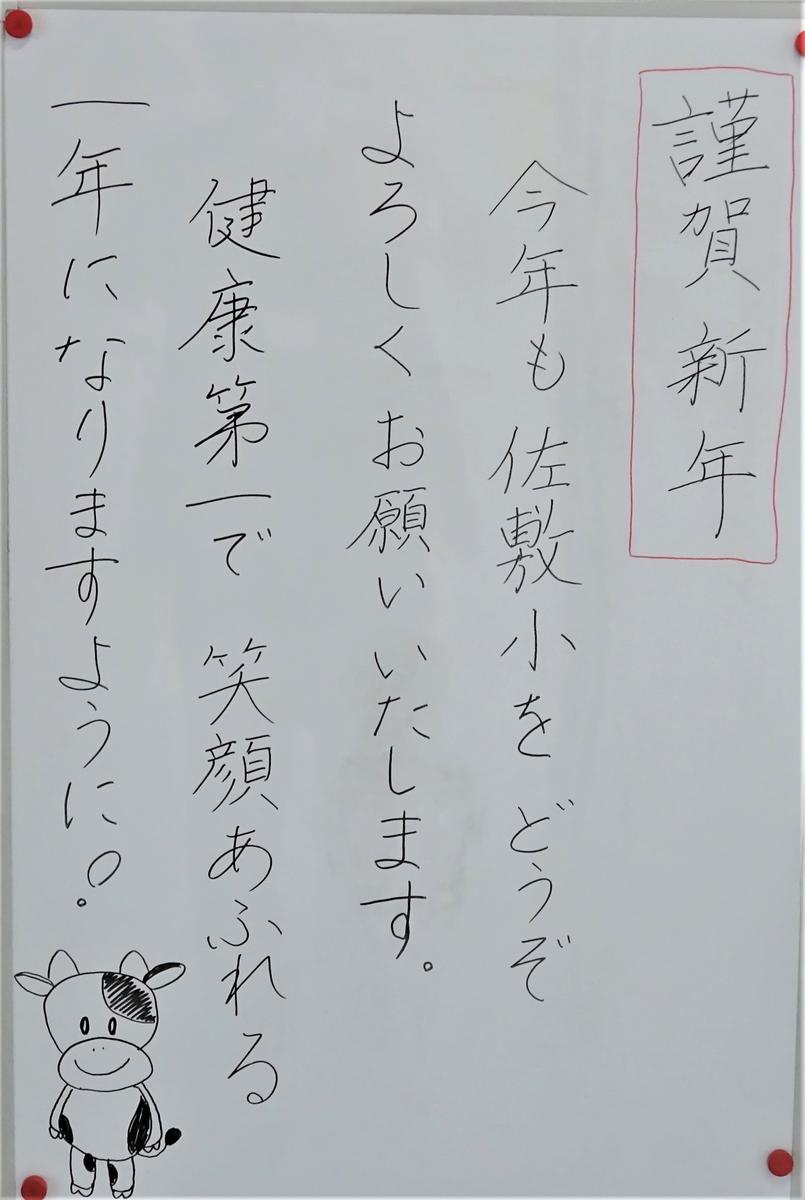 謹賀新年
今年も佐敷小をどうぞ
よろしくお願いいたします。
健康第一で笑顔あふれる
一年になりますように!